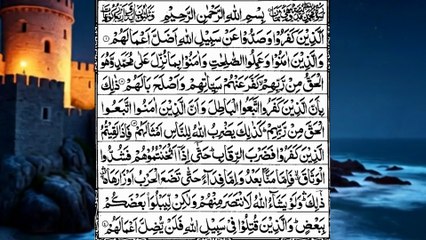 بِسْمِ اللهِ الرَّحْمٰنِ الرَّحِيْمِ
اَلَّذِيْنَ كَفَرُوْا وَصَدُّوْا عَنْ سَبِيْلِ اللهِ اَضَلَّ اَعْمَالَهُمْ ۝۱
وَالَّذِيْنَ اٰمَنُوْا وَعَمِلُوا الصّٰلِحٰتِ وَاٰمَنُوْا بِمَا نُزِّلَ عَلٰى مُحَمَّدٍ وَّهُوَ
الْحَقُّ مِنْ رَّبِّهِمْ كَفَّرَ عَنْهُمْ سَيِّاٰتِهِمْ وَاَصْلَحَ بَالَهُمْ ۝۲ ذٰلِكَ
بِاَنَّ الَّذِيْنَ كَفَرُوا اتَّبَعُوا الْبَاطِلَ وَاَنَّ الَّذِيْنَ اٰمَنُوا اتَّبَعُوا
الْحَقَّ مِنْ رَّبِّهِمْ كَذٰلِكَ يَضْرِبُ اللهُ لِلنَّاسِ اَمْثَالَهُمْ ۝۳ فَاِذَا لَقِيْتُمُ
الَّذِيْنَ كَفَرُوْا فَضَرْبَ الرِّقَابِ حَتّٰى اِذَا اَثْخَنْتُمُوْهُمْ فَشُدُّوا
الْوَثَاقَ فَاِمَّا مَنًّا بَعْدُ وَاِمَّا فِدَآءً حَتّٰى تَضَعَ الْحَرْبُ اَوْزَارَهَا
ذٰلِكَ وَلَوْ يَشَآءُ اللهُ لَانْتَصَرَ مِنْهُمْ وَلٰكِنْ لِّيَبْلُوَا۟ بَعْضَكُمْ
بِبَعْضٍ وَالَّذِيْنَ قُتِلُوْا فِيْ سَبِيْلِ اللهِ فَلَنْ يُّضِلَّ اَعْمَالَهُمْ ۝۴